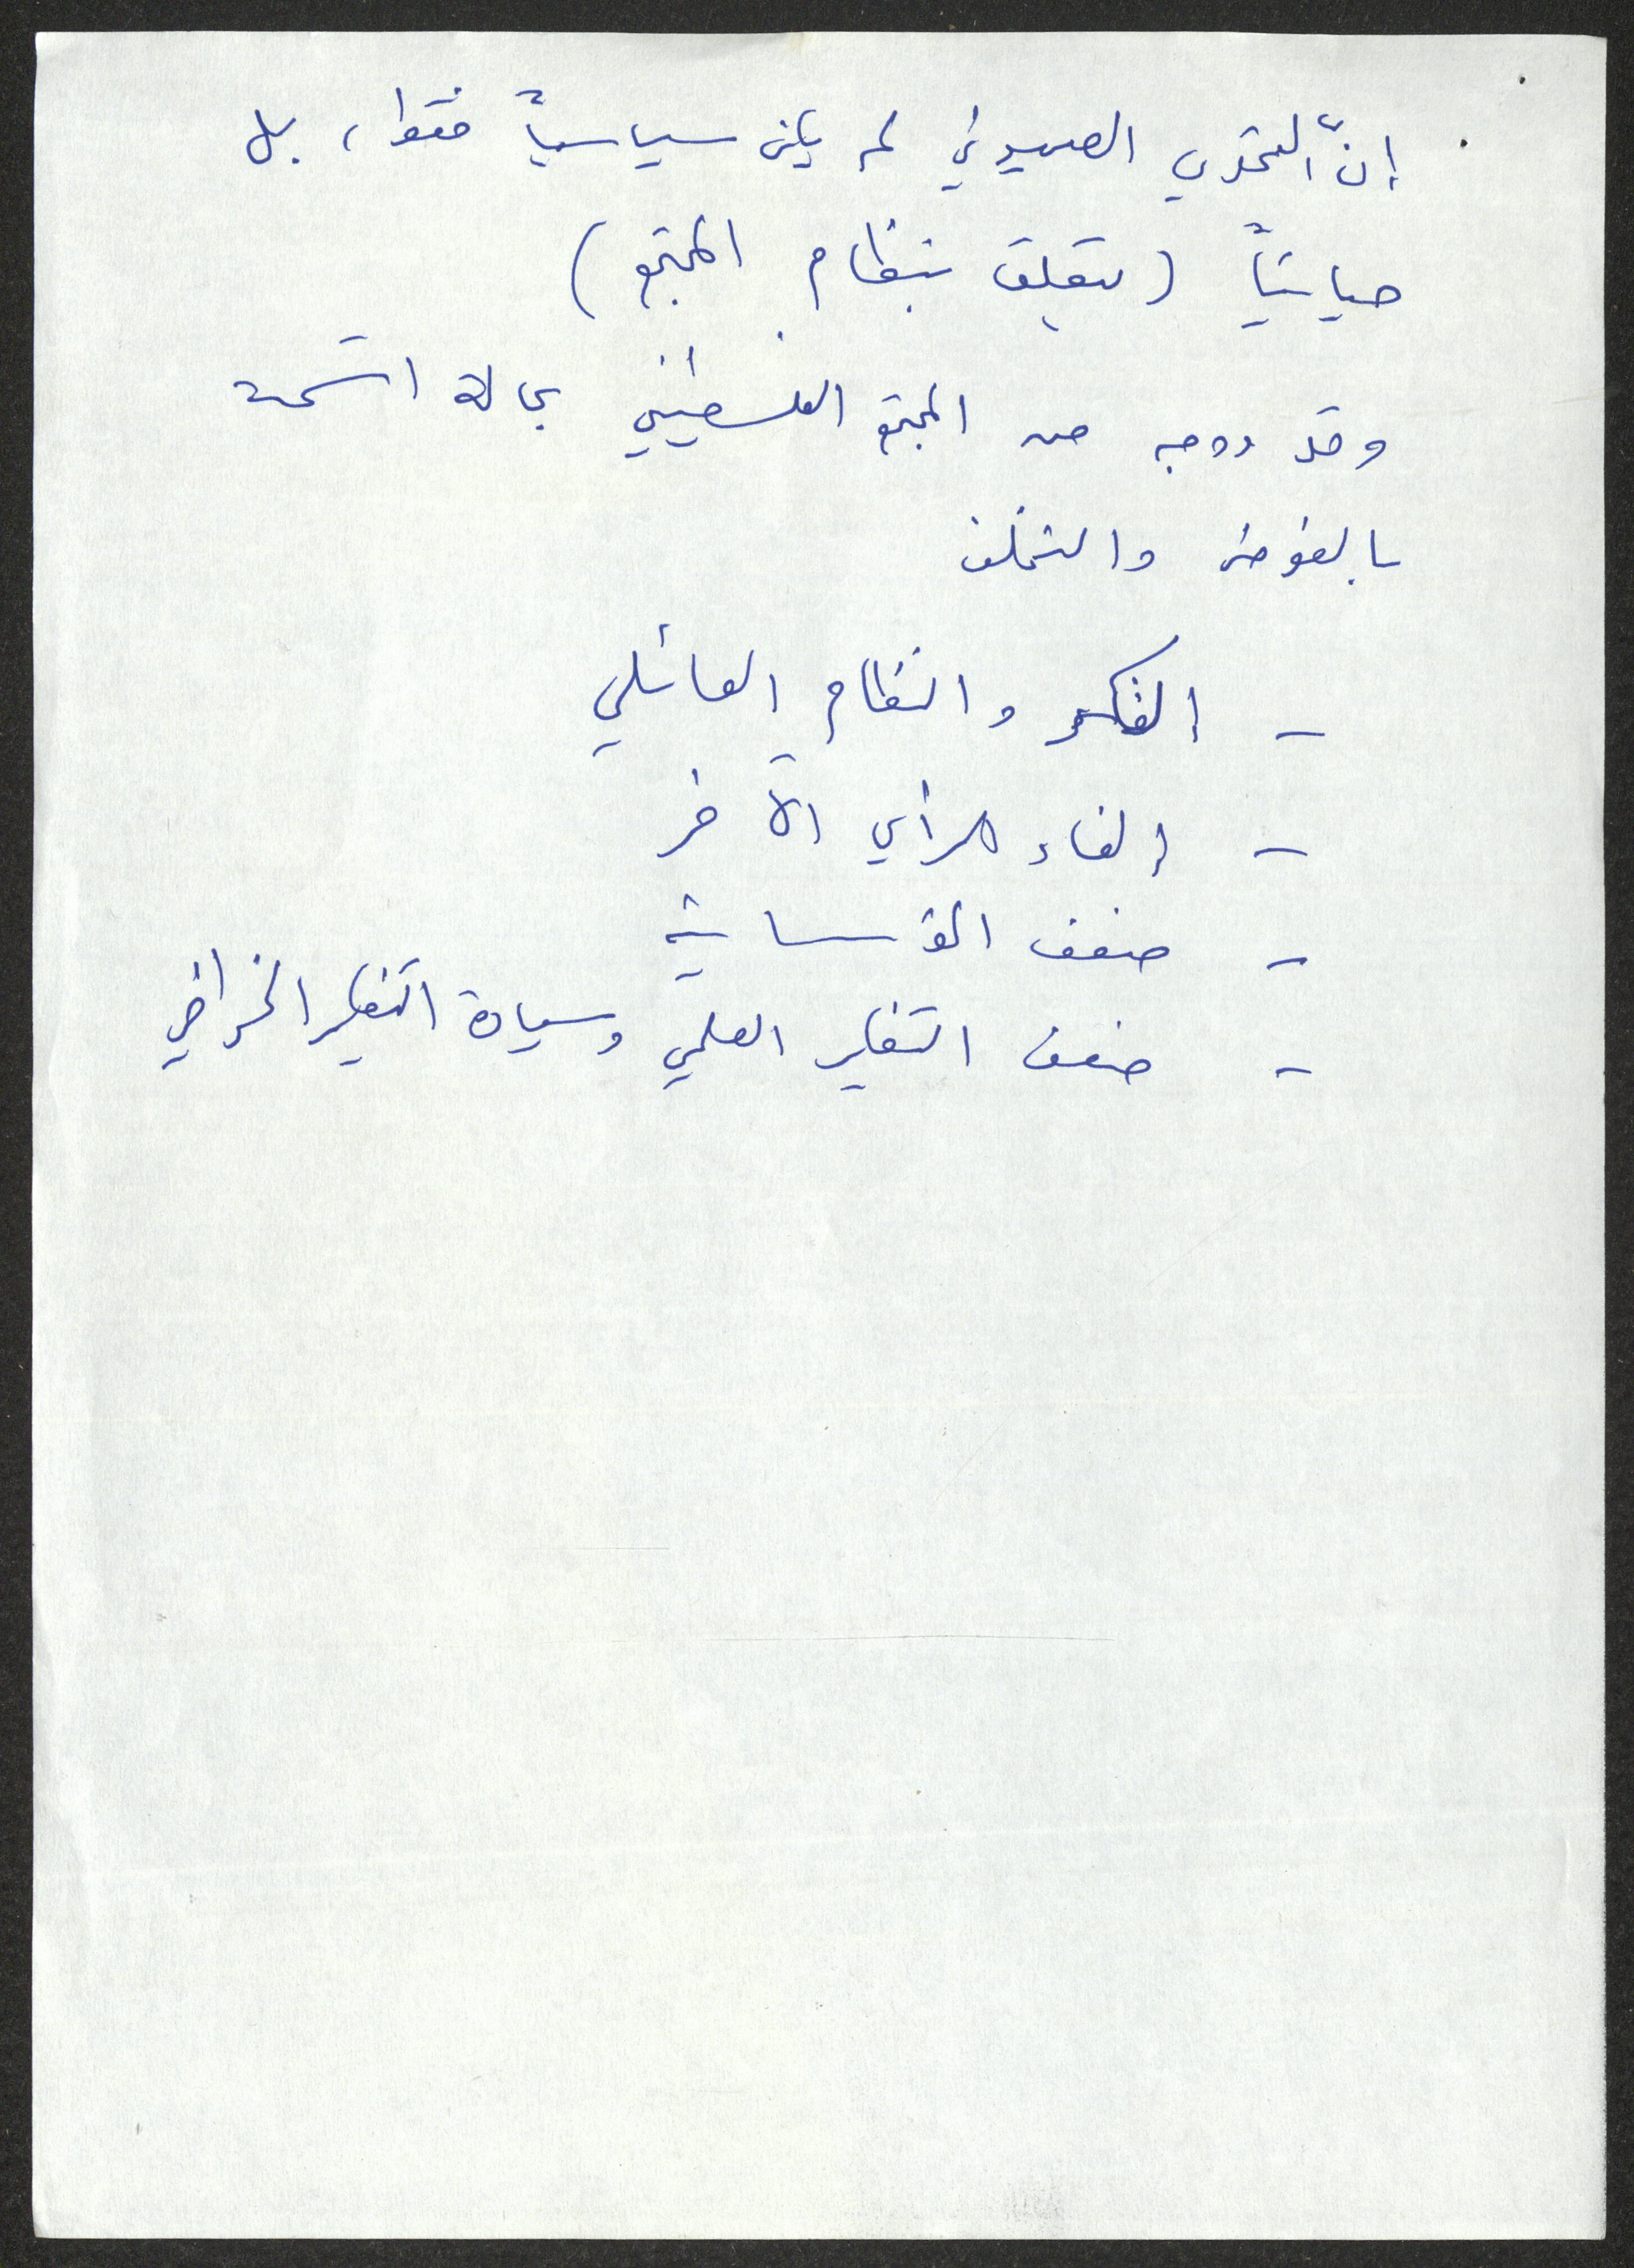 إنّ التحدي الصهيوني لم يكن سياسياً فقط، بل
حياتياً (يتعلق بنظام المجتمع)
وقد ووجه من المجتمع الفلسطيني بحالة اتسمت
بالفوضى والتخلف
- الفكر والنظام العائلي
- إلغاء الرأي الآخر
- ضعف المؤسساتية
- ضعف التفكير العلمي وسيادة التفكير الخرافي